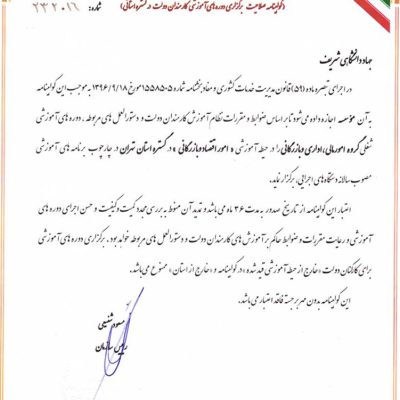 (گواهینامه صلاحیت برگزاری دوره های آموزشی کارمندان دولت در گستره استانی)
شماره: ۲۳۲۰۱۶
جهاد دانشگاهی شریف
در اجرای تبصره ماده (۵۹) قانون مدیریت خدمات کشوری و مفاد بخشنامه شماره ۱۵۵۸۵۰۵ مورخ ۱۳۹۶/۹/۱۸ به موجب این گواهینامه
به آن مؤسسه اجازه داده می شود تا بر اساس ضوابط و مقررات نظام آموزش کارمندان دولت و دستورالعمل های مربوطه، دوره های آموزشی
شغلی گروه امور مالی، اداری و بازرگانی را در حیطه آموزشی « امور اقتصاد و بازرگانی » در گستره استان تهران در چارچوب برنامه های آموزشی
مصوب سالانه دستگاه های اجرایی، برگزار نماید.
اعتبار این گواهینامه از تاریخ صدور به مدت ۳۶ ماه می باشد و تمدید آن منوط به بررسی مجدد کمیت و کیفیت و حسن اجرای دوره های
آموزشی و رعایت مقررات و ضوابط حاکم بر آموزش های کارمندان دولت و دستورالعمل های مربوطه خواهد بود. برگزاری دوره های آموزشی
برای کارکنان دولت «خارج از حیطه آموزشی قید شده» در گواهینامه و «خارج از استان» ممنوع می باشد.
این گواهینامه بدون مهر برجسته فاقد اعتبار می باشد.
مسعود شفیعی
رئیس سازمان